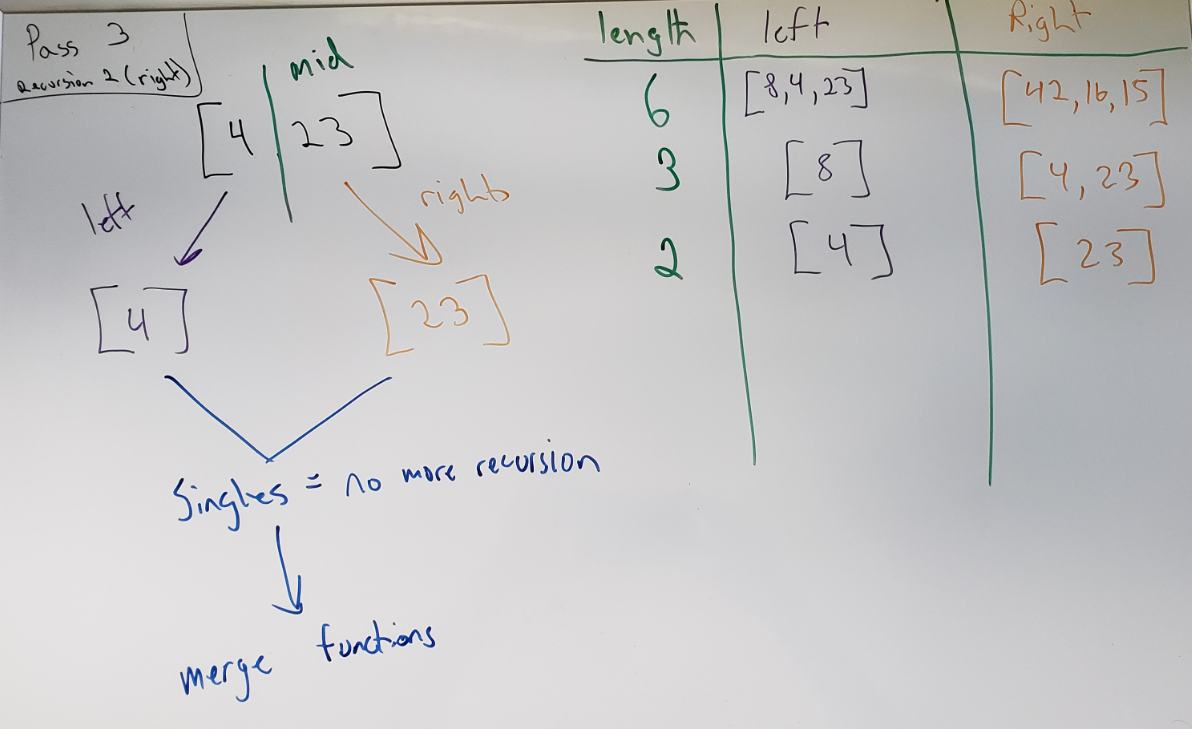 Pass 3
Recursion 2 (right)
mid
[4 | 23]
left
right
[4]
[23]
Singles = no more recursion
merge functions
length left Right
6 [8,4,23] [42,16,15]
3 [8] [4,23]
2 [4] [23]